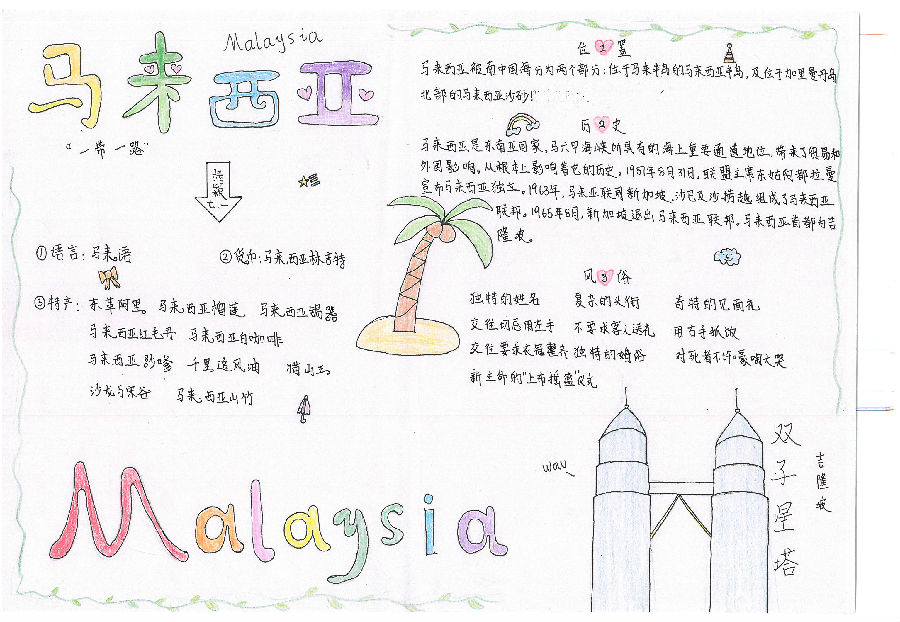 马来西亚
Malaysia
“一带一路”
①语言：马来语
②货币：马来西亚林吉特
③特产：东革阿里。 马来西亚榴莲 马来西亚锡器
马来西亚红毛丹 马来西亚白咖啡
马来西亚 千里追风油
沙龙与保谷 马来西亚山竹
Malaysia
位1置
马来西亚被南中国海分为两个部分：位于马来半岛的马来西亚半岛，及位于加里曼丹岛
北部的马来西亚沙砂！
历2史
马来西亚是东南亚国家，马六甲海峡所具有的海上重要通道地位，带来了贸易和
外国影响。从根本上影响着它的历史。1957年8月31日，联盟主席东姑阿都拉曼
宣布马来西亚独立。1963年，马来亚联同新加坡、沙巴及沙捞越组成了马来西亚
联邦。1965年8月，新加坡退出马来西亚联邦。马来西亚首都为吉
隆坡。
风3俗
独特的姓名 复杂的头衔 奇特的见面礼
交往切忌用左手 不要求客人送礼 用右手抓饭
交往要求衣冠整齐 独特的婚俗 对死者不许嚎啕大哭
新生命的“上布摇篮”仪式
wau
双子星塔
吉隆坡